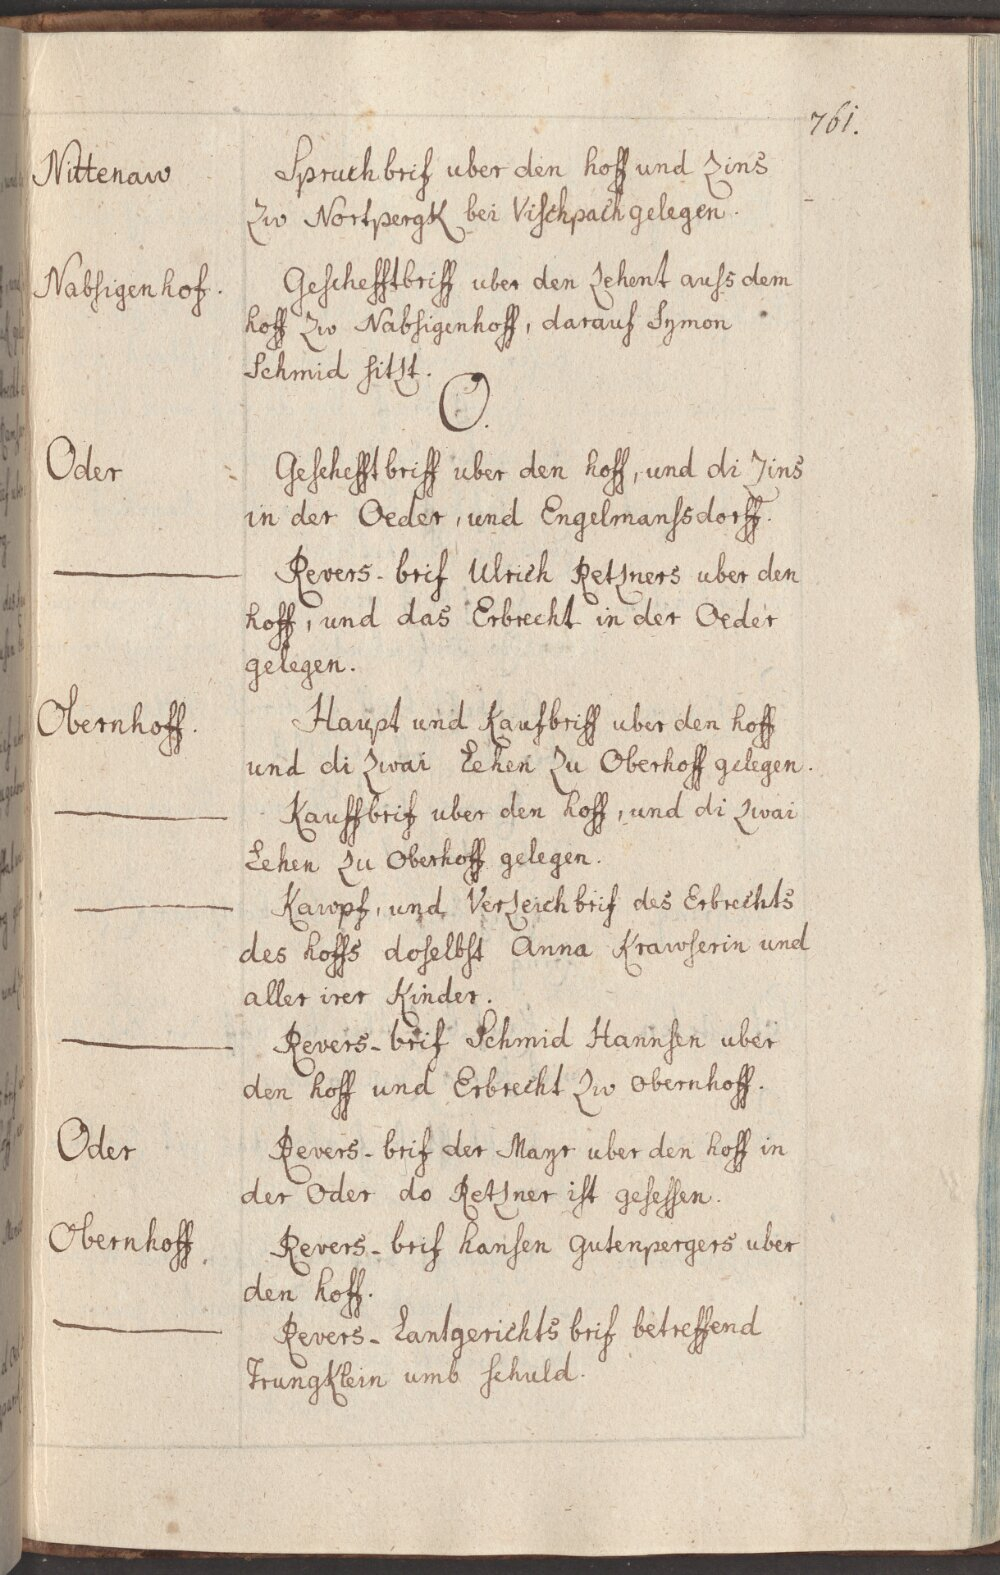 761.
Nittenaw Spruchbrif uber den hoff und Zins
Zw Nortpergk bei Vischpach gelegen.
Nabsigenhof. Geschefftbriff uber den Zehent auss dem
hoff Zw Nabsigenhoff, darauf Symon
Schmid sitzt.
O.
Oder Geschefftbriff uber den hoff, und di Zins
in der Oeder, und Engelmanssdorff.
Revers-brif Ulrich Retzners uber den
hoff, und das Erbrecht in der Oeder
gelegen.
Obernhoff. Haupt und Kaufbriff uber den hoff
und di Zwai Lehen Zu Oberhoff gelegen.
Kauffbrif uber den hoff, und di Zwai
Lehen Zu Oberhoff gelegen.
Kawpf, und Verzeichbrif des Erbrechts
des hoffs doselbst Anna Krawserin und
aller irer Kinder.
Revers-brif Schmid Hannsen uber
den hoff und Erbrecht Zw obernhoff.
Oder Revers-brif der Mayr uber den hoff in
der Oder do Retzner ist gesessen.
Obernhoff. Revers-brif hansen gutenpergers uber
den hoff.
Revers-Lantgerichtsbrif betreffend
Trungklein umb schuld.